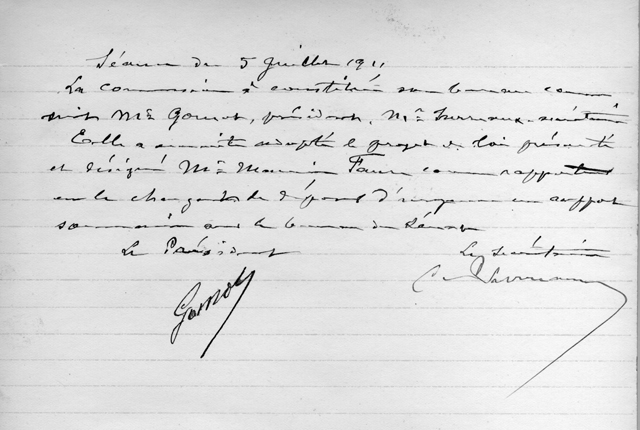 Séance du 5 juillet 1911
La commission a constitué son bureau comme
suit Mr Gomot, président, Mr secrétaire
Elle a ensuite adopté le projet de loi présenté
et désigné Mr Maurice Faure comme rapporteur
en le chargeant de déposer d'urgence un rapport
sommaire sur le bureau du Sénat
Le Président
Le secrétaire
Gomot